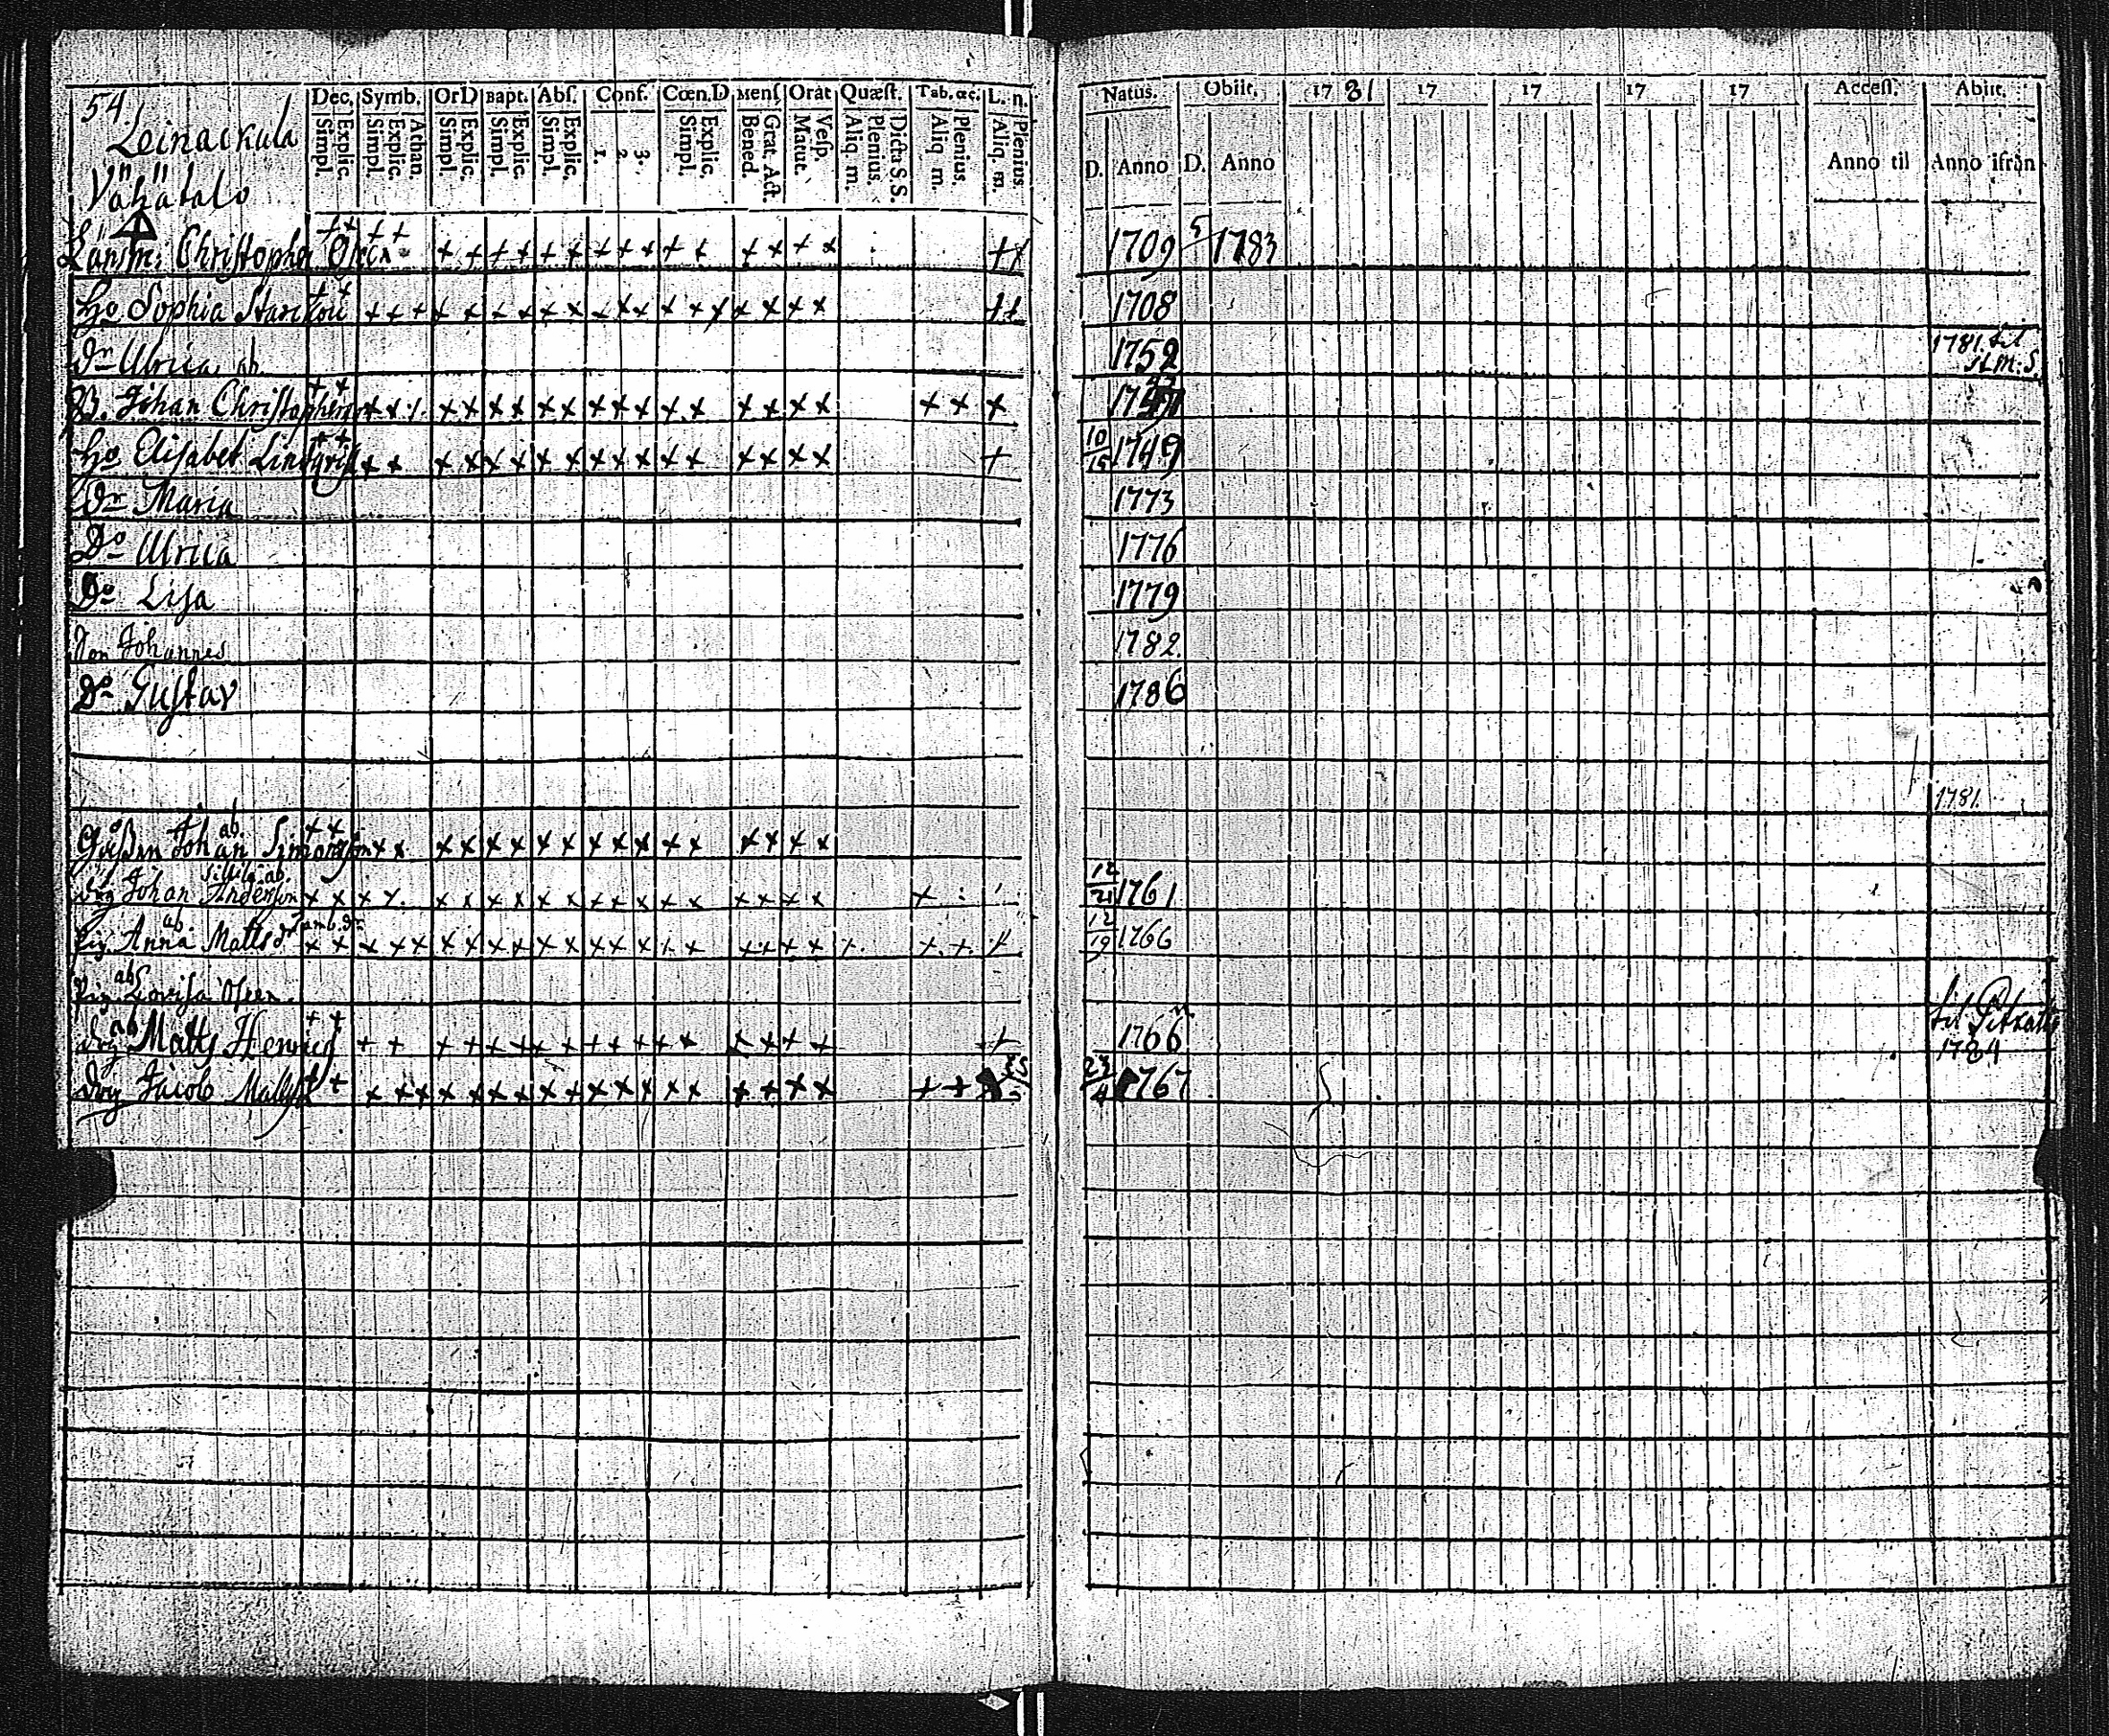 54.
Leinackula
Vähätalo
Dec. Symb. OrD Bapt. Abſ. Conf. Cœn.D Menſ Orat Quæſt. Tab.œc. L. n.
Simpl. Explic. Simpl. Explic. Athan. Simpl. Explic. Simpl. Explic. Simpl. Explic. 1. 2. 3. Simpl. Explic. Bened. Grat. Act. Matut. Veſp. Aliq. m. Plenius. Dicta S.S. Aliq m. Plenius. Aliq. m. Plenius.
Natus. Obiit. 17 81 17 17 17 17 Acceſſ. Abiit.
D. Anno D. Anno Anno til Anno ifrån
Länſm: Chriſtopher + + + + + + + + + + + + + + + + + + + + + 1709 5 1783
Ho Sophia + + + + + + + + + + + + + + + + + + + + + + 1708
Dr Ulrica ab. 1752 1781 til
B. Johan Chriſtopherson + + + + + + + + + + + + + + + + + + + + + + +
Ho Eliſabet + + + + + + + + + + + + + + + + + + + + 10/15 1749
Dr Maria 1773
Do Ulrica 1776
Do Liſa 1779
Son Johannes 1782.
Do Guſtav 1786
1781.
Johan Simonſson ab. + + + + + + + + + + + + + + + + + + +
Drg Johan Anderſson ab. + + + + + + + + + + + + + + + + + + + + 12/21 1761
Pig. Anna Matts dr ab + + + + + + + + + + + + + + + + + + + + + + + + 12/19 1766
Pig. Loviſa ab
Drg Matts ab + + + + + + + + + + + + + + + + + + + + 1766 til 1784
Drg Jacob Mattſson + + + + + + + + + + + + + + + + + + + + + + 23/4 1767